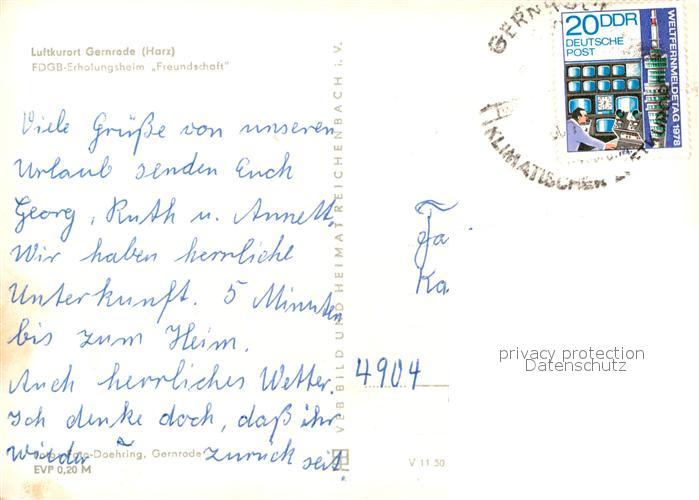 Luftkurort Gernrode (Harz)
FDGB-Erholungsheim „Freundschaft"
Viele Grüße von unseren
Urlaub senden Euch
Georg, Ruth u. Annett.
Wir haben herrliche
Unterkunft. 5 Minuten
bis zum Heim.
Auch herrliches Wetter.
Ich denke doch, daß ihr
wieder zurück seit.
Foto-Daehring, Gernrode
EVP 0,20 M
VEB BILD UND HEIMAT REICHENBACH i. V.
V 11 50
GERNRODE
KLIMATISCHER
20 DDR
DEUTSCHE
POST
WELTFERNMELDETAG 1978
Fa
Ka
4904
privacy protection
Datenschutz